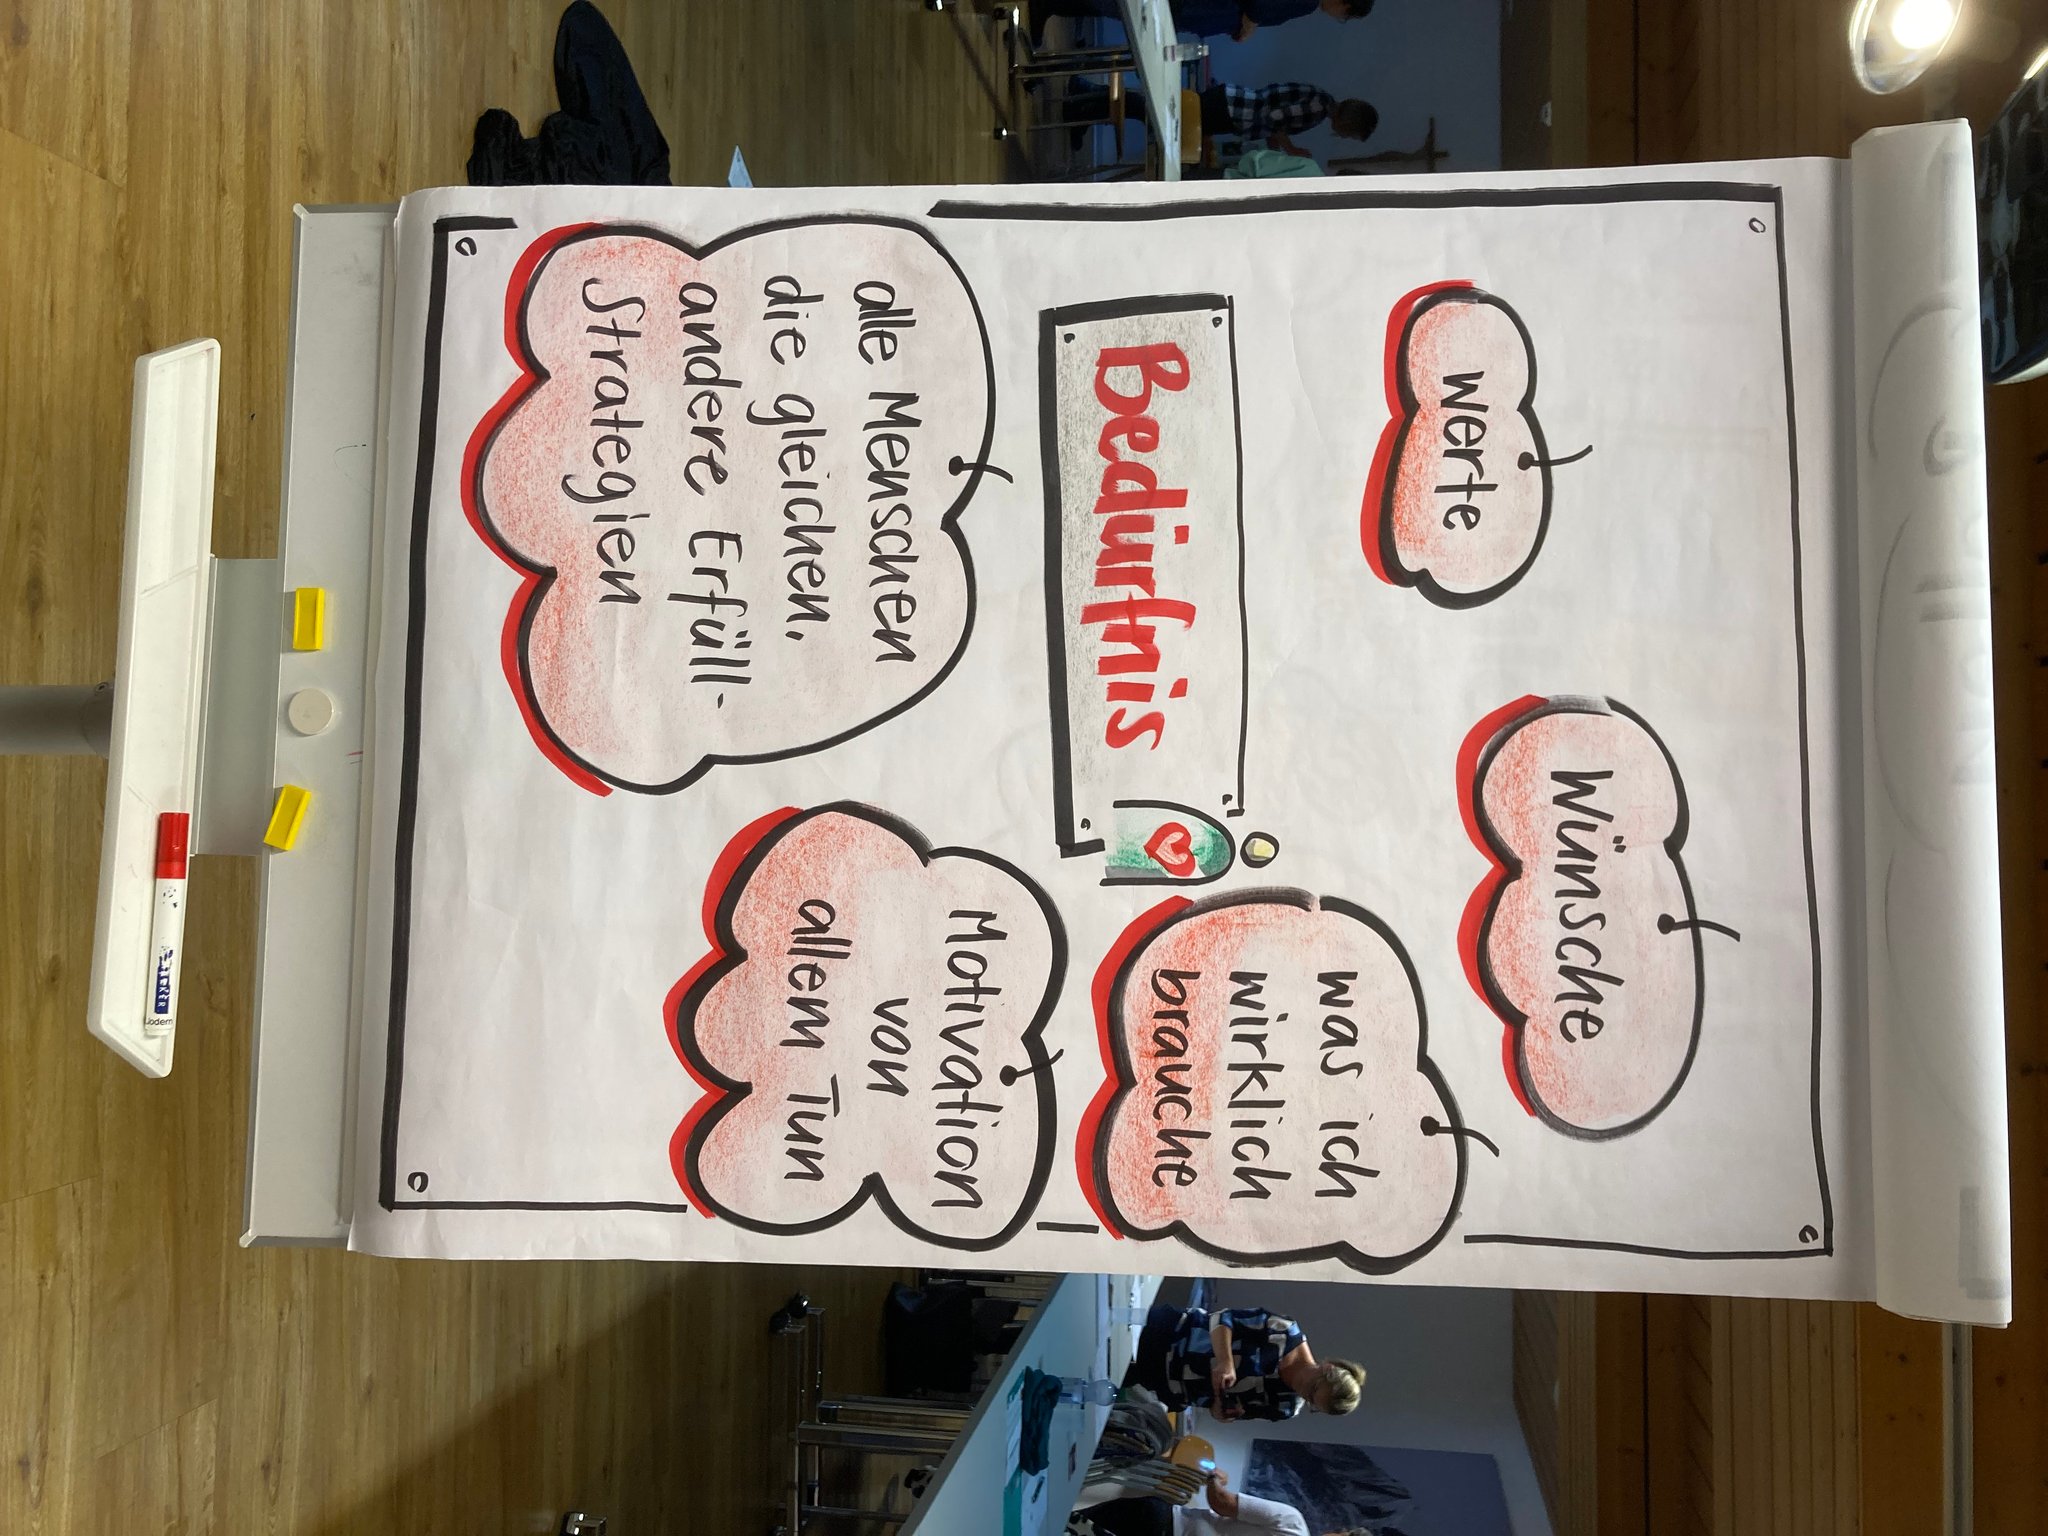 werte
Wünsche
was ich
wirklich
brauche
Bedürfnis
Motivation
von
allem Tun
alle Menschen
die gleichen,
andere Erfüll-
Strategien